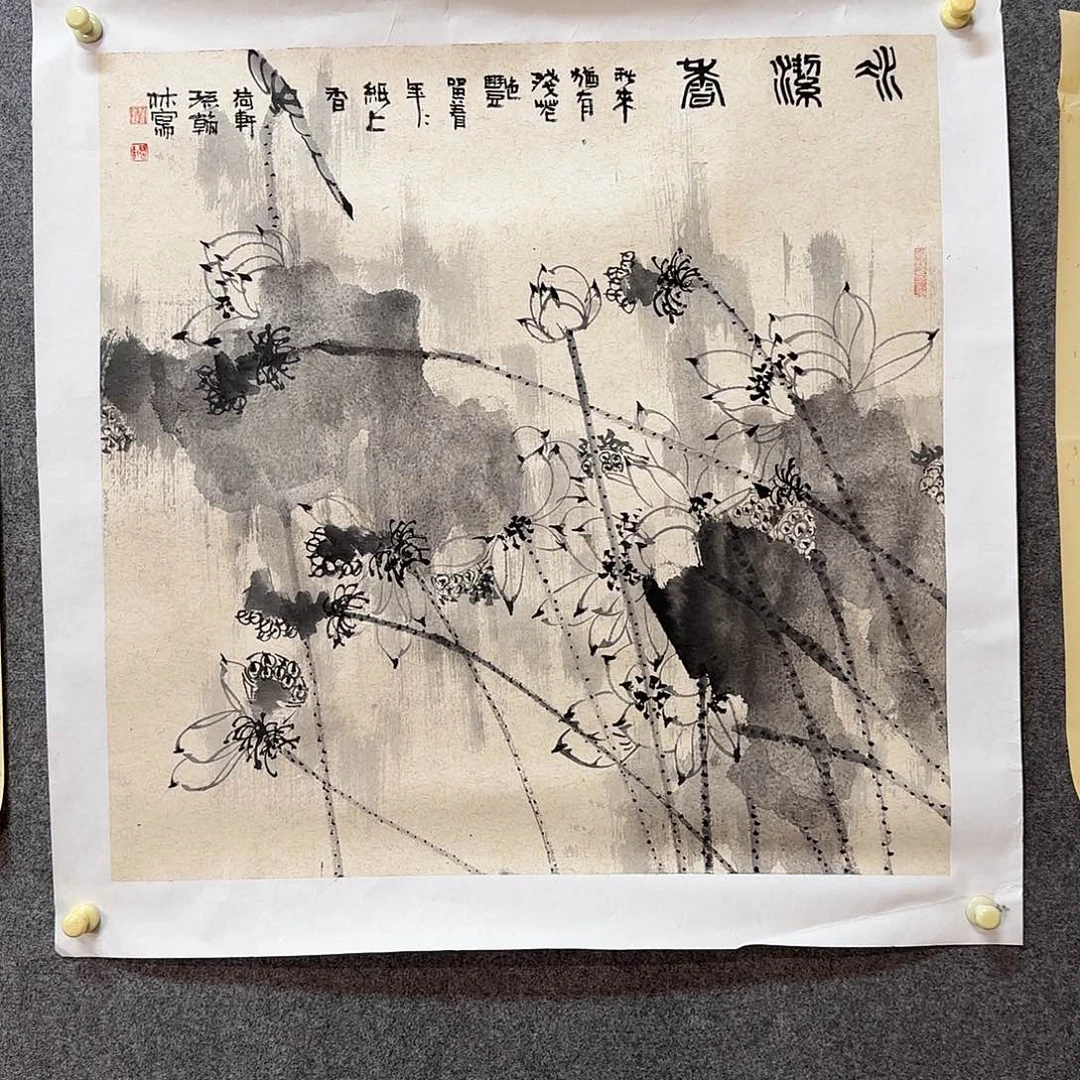 冰潔香
秋來
猶有
殘花
艷
留着
年〻
紙上
香
荷軒
翰
寫